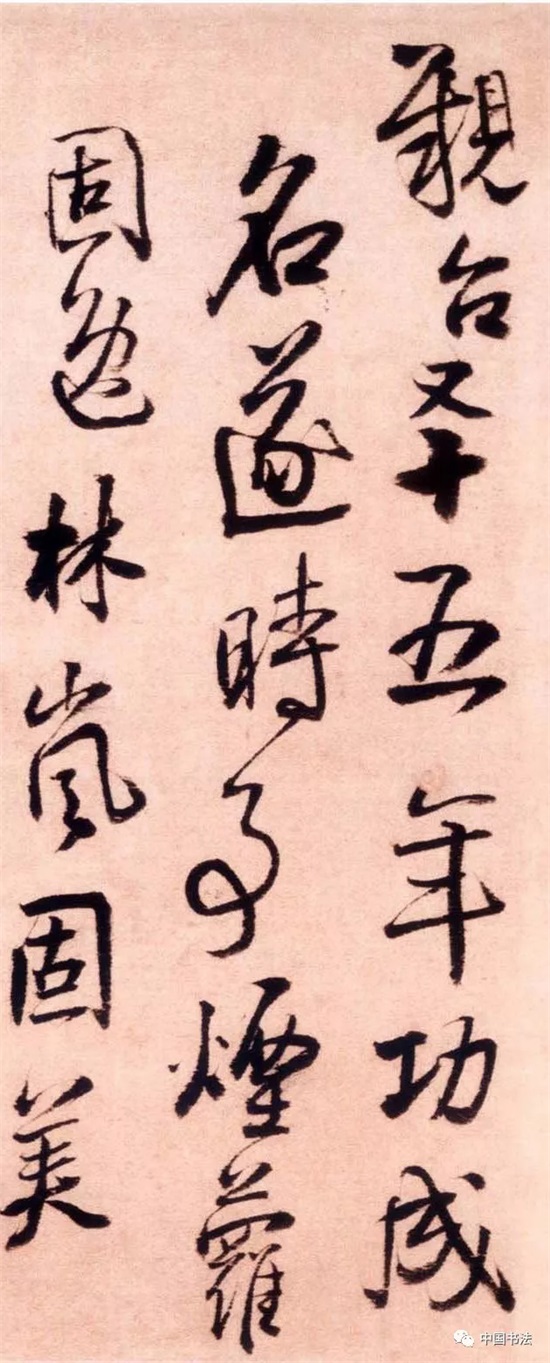 觀台又十五年功成
名遂時事煙蘿
固逸林嵐固美
中国书法